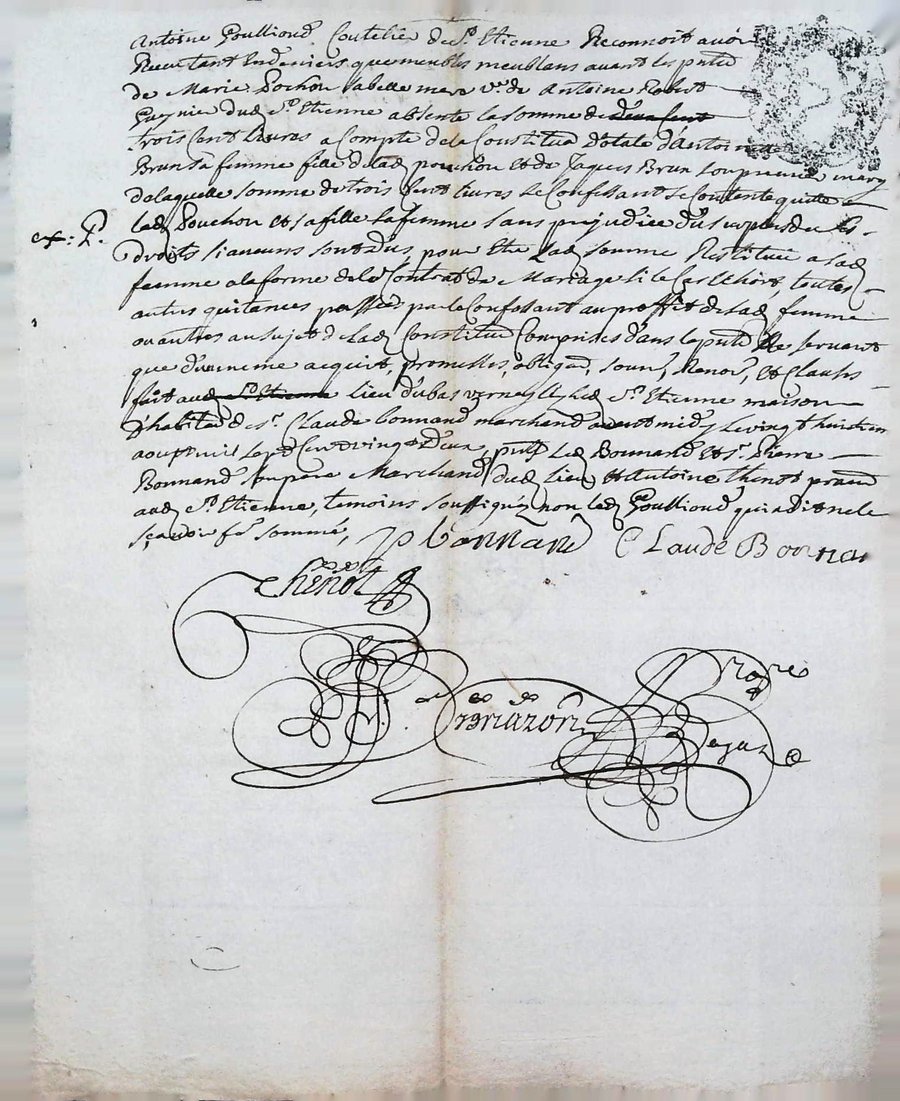 Antoine Goulliond Coutelier de St. Etienne Reconnoit avoir
Receu tant en deniers que meubles meublans avant les pntes
de Marie Pochon sa belle mere ve. de Antoine Robert
dud St. Etienne absente la somme de deux cent
trois cent livres a Compte de la Constitūō dotale d'Antoine
Brun sa femme fille de lad pouchon et de Jaques Brun son premier mary
de laquelle somme de trois cent livres le Confessant se Contente quitte
lad Pouchon et sa fille sa femme sans prejudice du surplus de ses
ex: p.
droits si aucuns sont dus, pour Etre lad somme Restituée a sad
femme a la forme de le. Contrat de Mariage si le cas Echoit, toutes
autres quitances passées par le Confessant au proffit de sad femme
ou autres au sujet de lad Constitūō Comprises dans la pnte ne servant
que d'un meme acquit, promesses, obligaō, soum, Renon, et Clauses
fait aud St. Etienne lieu du bas vernay led St. Etienne maison
d'habitaō de sr. Claude bonnand marchand avant midy le vingt huit
aoust mil sept Cent vingt deux, pnts led Bonnand et sr. Pierre
Bonnand son pere Marchand dud lieu et Antoine thenot
aud St. Etienne, temoins soussignés non led Goulliond qui a dit ne le
sçavoir fe. sommé,
p bonnand Claude Bonnan
Thenot